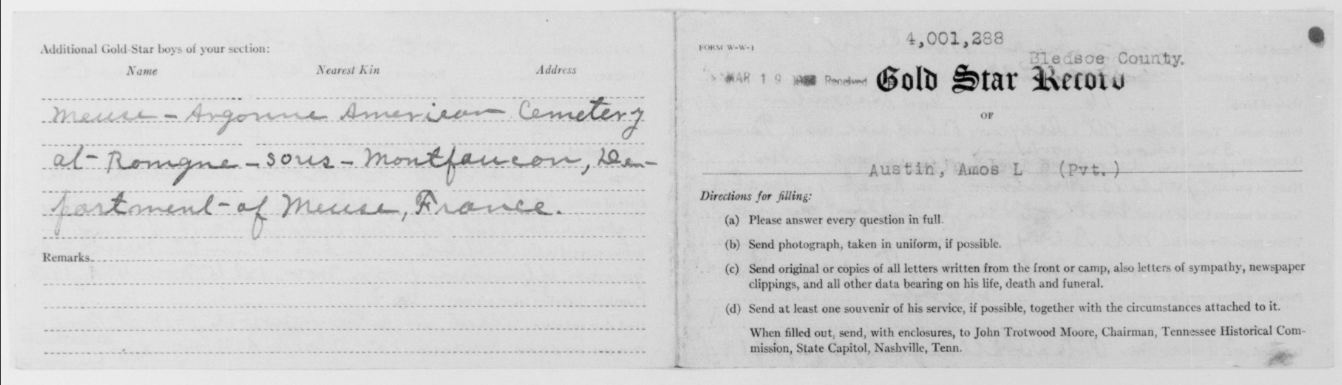 Additional Gold Star boys of your section:
Name Nearest Kin Address
Meuse - Argonne American Cemetery
at - Romgne - sous - Montfaucon, De-
partment - of Meuse, France.
Remarks
FORM W-W-1
4,001,288
Bledsoe County.
MAR 19 Received
Gold Star Record
OF
Austin, Amos L (Pvt.)
Directions for filling:
(a) Please answer every question in full.
(b) Send photograph, taken in uniform, if possible.
(c) Send original or copies of all letters written from the front or camp, also letters of sympathy, newspaper
clippings, and all other data bearing on his life, death and funeral.
(d) Send at least one souvenir of his service, if possible, together with the circumstances attached to it.
When filled out, send, with enclosures, to John Trotwood Moore, Chairman, Tennessee Historical Com-
mission, State Capitol, Nashville, Tenn.